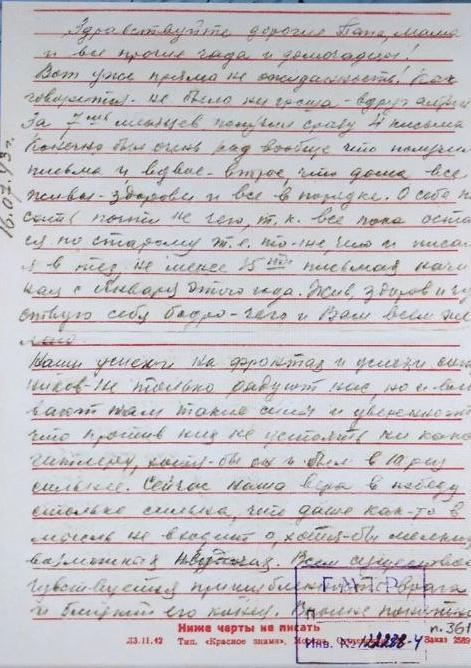 Здравствуйте дорогие Папа, мама
и все прочие чада и домочадцы!
Вот уже прямо не ожиданность! Как
говорится - не было ни гроша - вдруг алтын
За 7 месяцев получил сразу 4 письма
Конечно был очень рад вообще что получил
письма и, вдвое - втрое что дома все
живы - здоровы и все в порядке. О себе пи
сать почти не чего, т. к. все пока оста
ся по старому т. е. то-же, что и писал
я в тех не менее 15ти письмах начи
ная с Января этого года. Жив, здоров и чу
ствую себя бодро - чего и Вам всем же
лаю.
Наши успехи на фронтах и успехи союз
ников - не только радуют нас, но и вли
вают нам такие силы и уверенность
что против них не устоять ни како
гитлеру, хотя-бы он и был в 10 раз
сильнее. Сейчас наша вера в победу
столько сильна, что даже как-то в
мысль не входит о, хотя-бы мелких
возможных неудачах. Всем существом
чувствуется приближение врага
и близкий его конец. Вполне
16.07.43 г.
Ниже черты не писать
Л3.11.42 Тип. «Красное знамя», Заказ 2589
п. 361
Инв. №